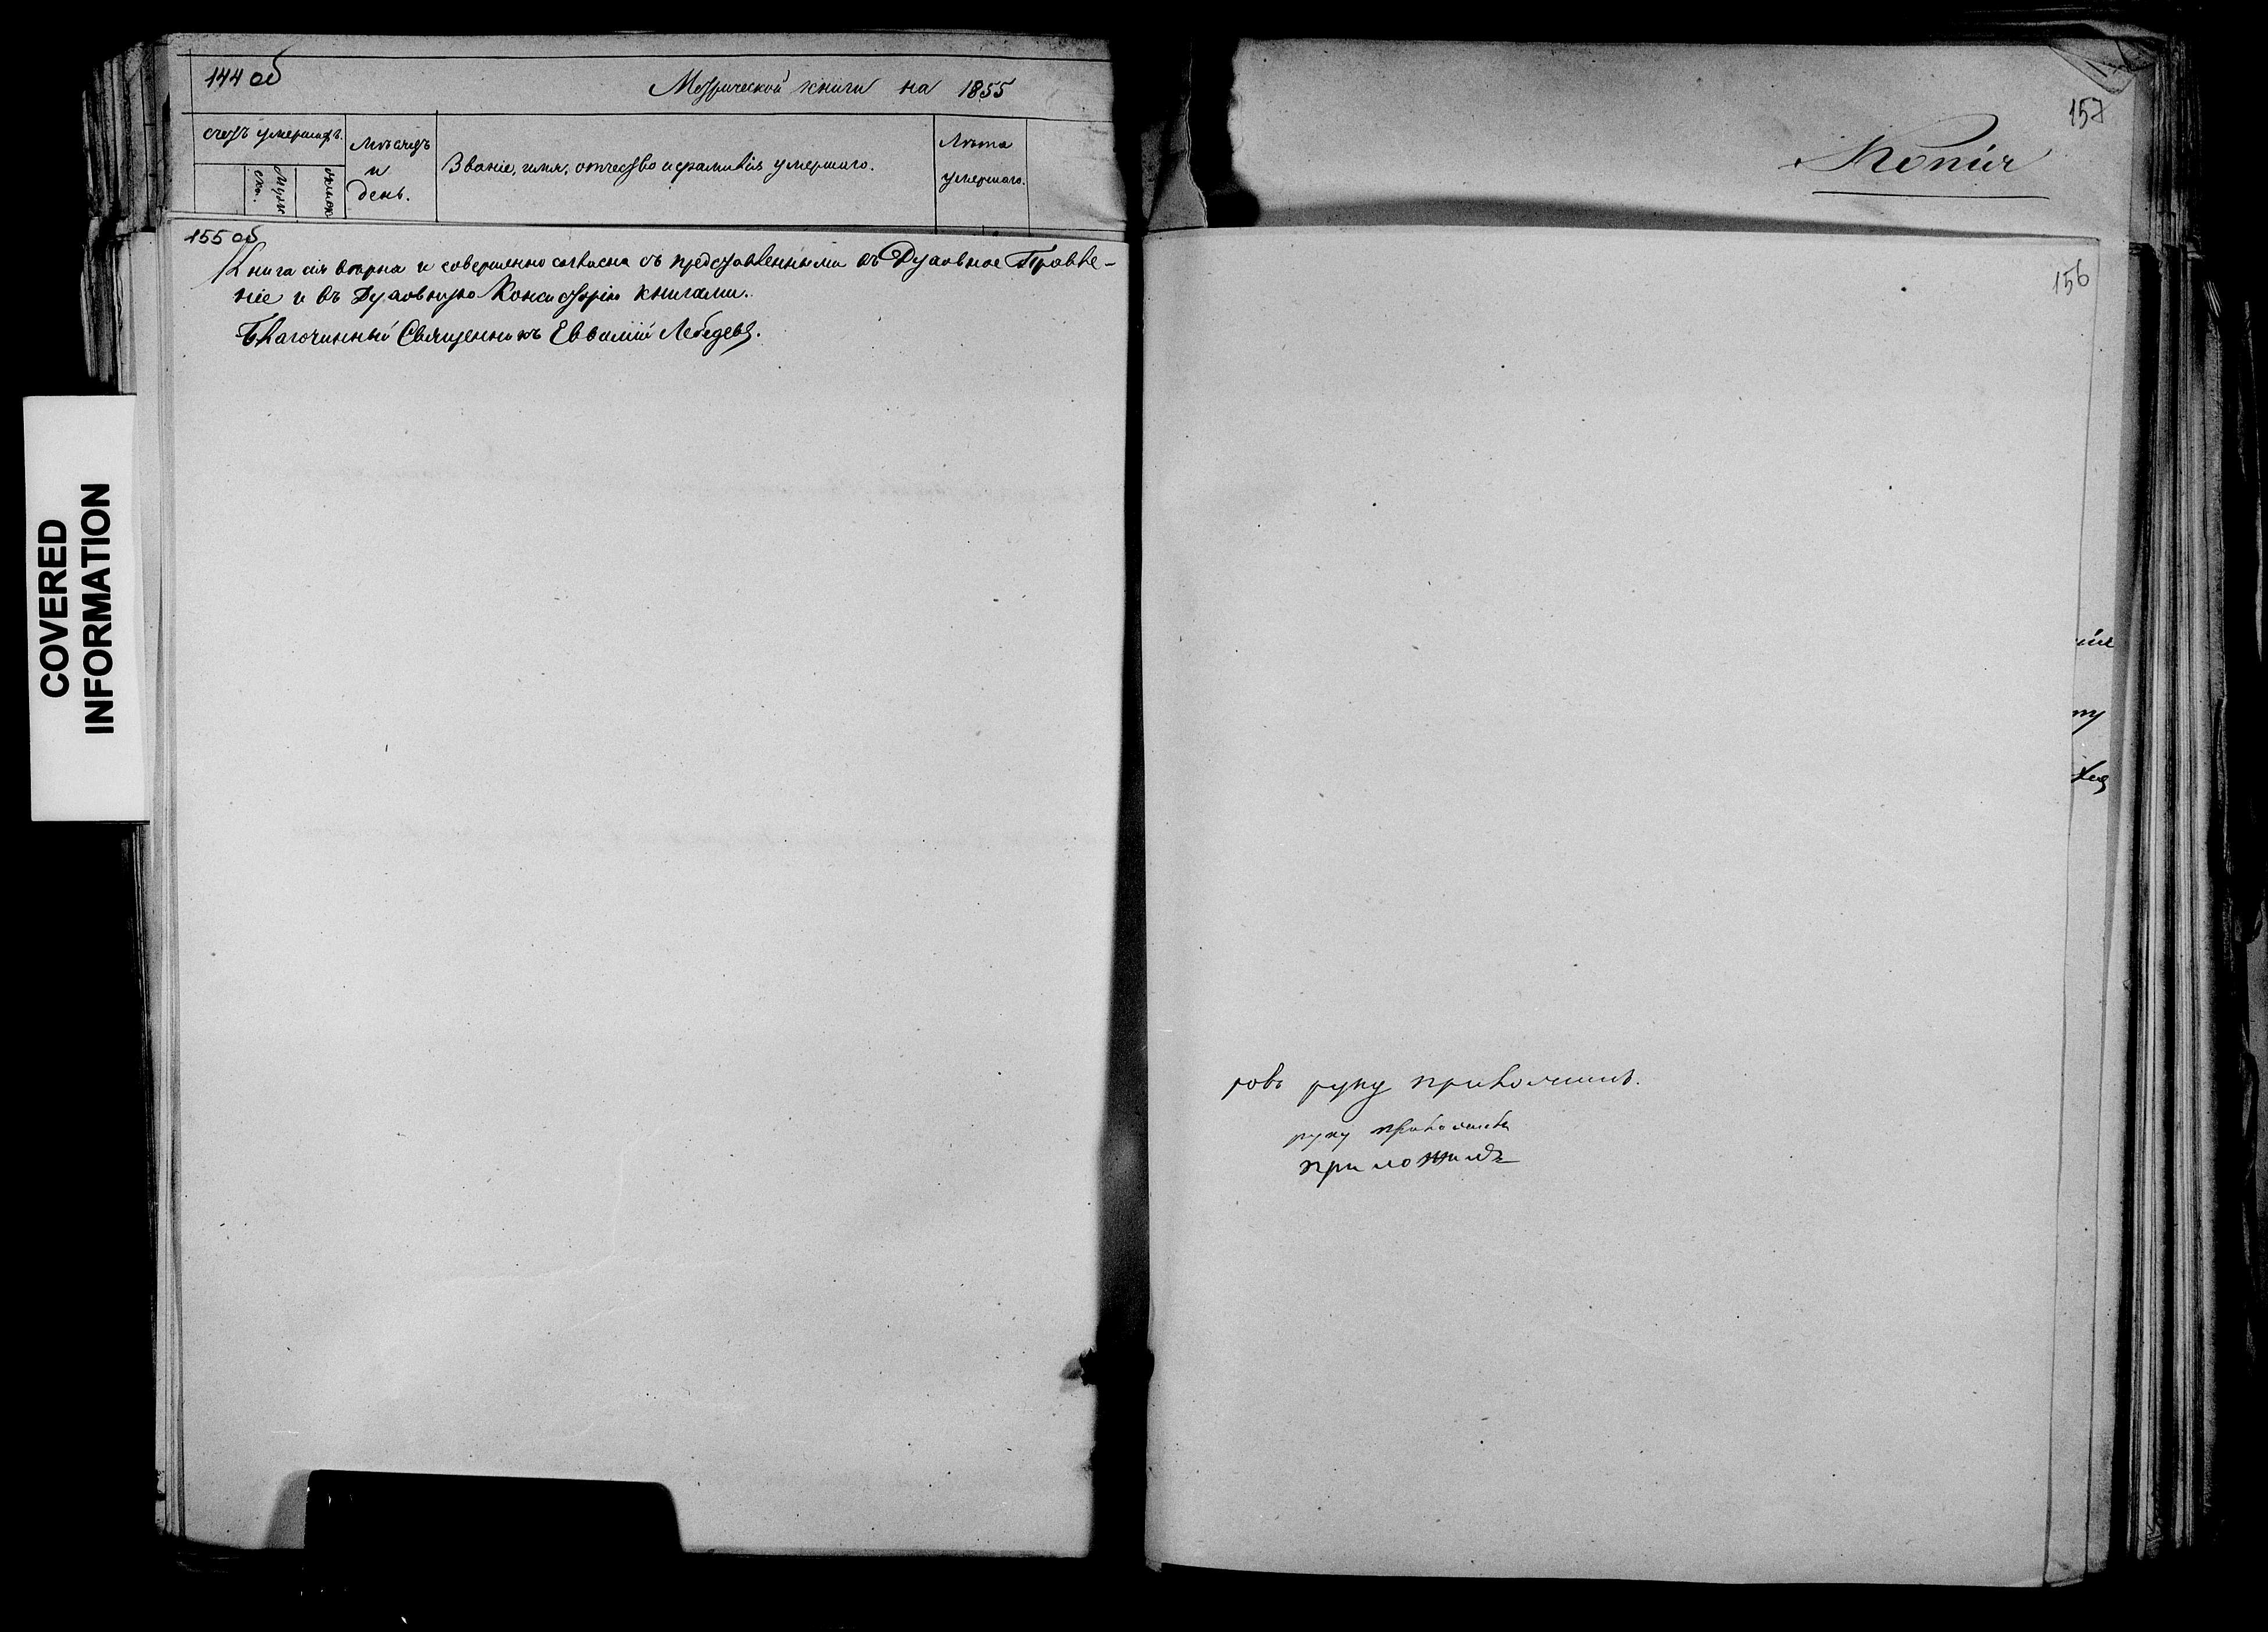 144 об
Метрической книги на 1855
счетъ умершихъ.
Муже
ска.
женск
Мѣсяцъ
и
день.
Званіе, имя, отчество и фамилія умершаго.
Лѣта
умершаго.
155 об
Книга сія вѣрна и совершенно согласна съ представленными въ Духовное Правле-
ніе и въ Духовную Консисторію книгами.
Благочинный Священникъ Евѳимій Лебедевъ.
COVERED
INFORMATION
157
Копія
156
ія
ту
ровъ руку приложилъ.
руку приложилъ
приложилъ